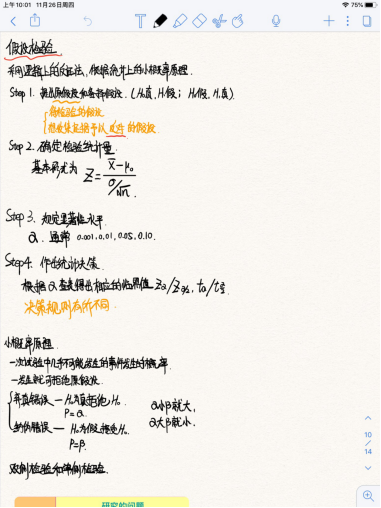 上午10:01 11月26日周四
75%
假设检验
利用逻辑上的反证法，依据统计上的小概率原理
Step 1. 提出原假设和备择假设. (H₀真, H₁假; H₀假, H₁真)
待检验的假设
想收集证据予以支持的假设
Step 2. 确定检验统计量
基本形式为 Z = (x̄-μ₀)/(σ/√n).
Step 3. 规定显著性水平
α. 通常 0.001, 0.01, 0.05, 0.10.
Step4. 作出统计决策
根据α查表得出相应的临界值 Zα/Zα/2, tα/tα/2
决策规则有所不同
小概率原理
一次试验中几乎不可能发生的事件发生的概率
一旦发生就可拒绝原假设
弃真错误 — H₀为真拒绝H₀.
P=α.
α小β就大,
取伪错误 — H₀为假接受H₀
α大β就小.
P=β.
双侧检验和单侧检验
研究的问题
10
14